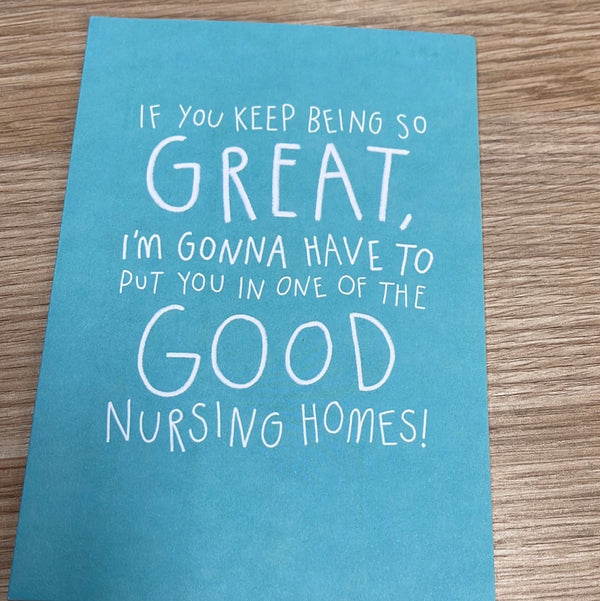 IF YOU KEEP BEING SO
GREAT,
I'M GONNA HAVE TO
PUT YOU IN ONE OF THE
GOOD
NURSING HOMES!